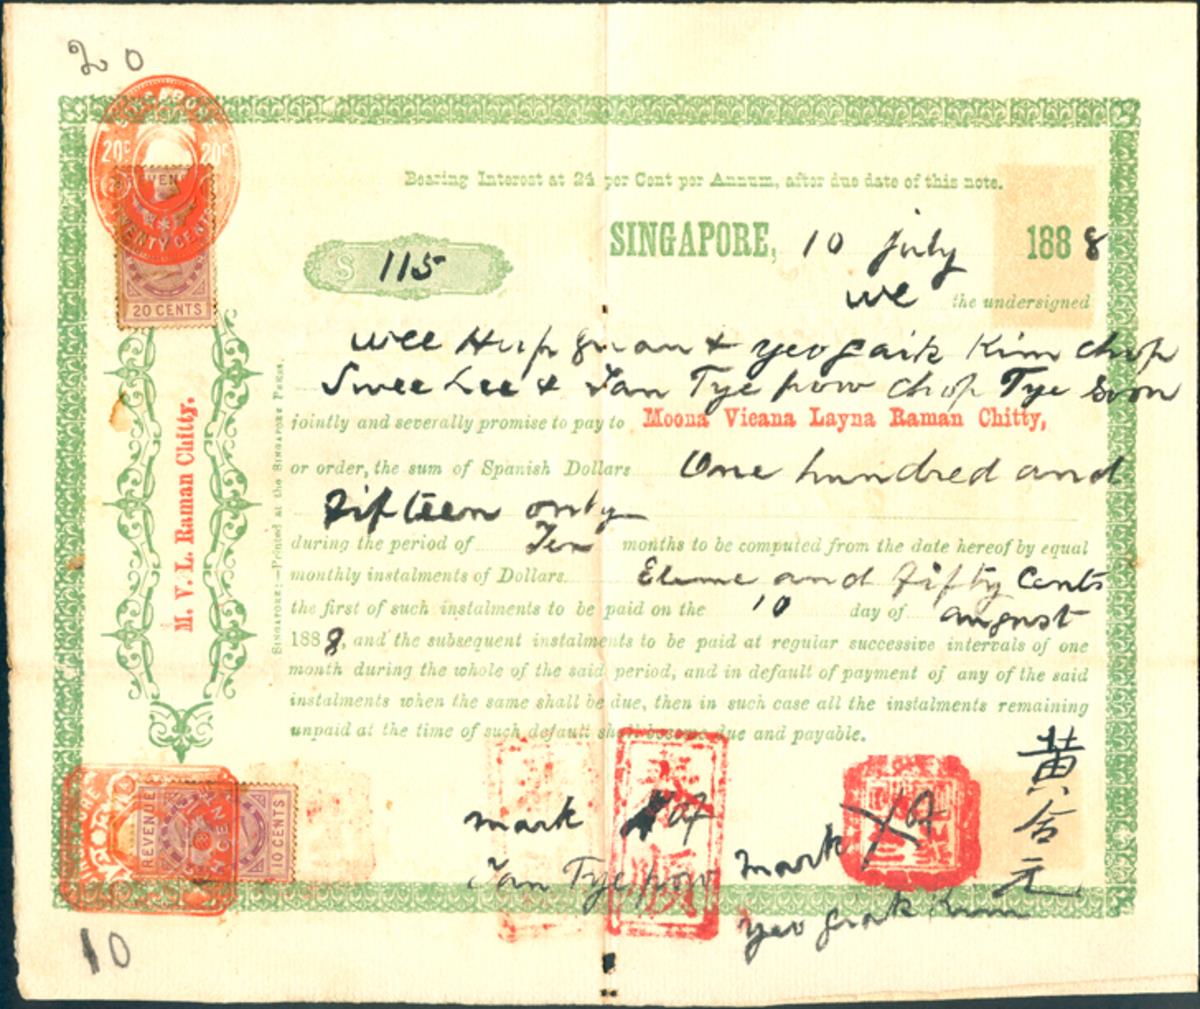 20
20c 20c
REVENUE
TWENTY CENTS
20 CENTS
Bearing Interest at 24 per Cent per Annum, after due date of this note.
SINGAPORE, 10 July 1888
$ 115
we the undersigned
Wee Hup Guan & Yeo Gaik Kim chop
Swee Lee & Tan Tye pow chop Tye Soon
jointly and severally promise to pay to Moona Vieana Layna Raman Chitty,
or order, the sum of Spanish Dollars One hundred and
Fifteen only
during the period of Ten months to be computed from the date hereof by equal
monthly instalments of Dollars and Fifty Cents
the first of such instalments to be paid on the 10 day of august
1888, and the subsequent instalments to be paid at regular successive intervals of one
month during the whole of the said period, and in default of payment of any of the said
instalments when the same shall be due, then in such case all the instalments remaining
unpaid at the time of such default shall become due and payable.
M. V. L. Raman Chitty.
SINGAPORE:—Printed at the SINGAPORE PRESS.
REVENUE
10 CENTS
mark X of
Tan Tye pow
順
mark X of
Yeo Giak Kim
黃合元
10